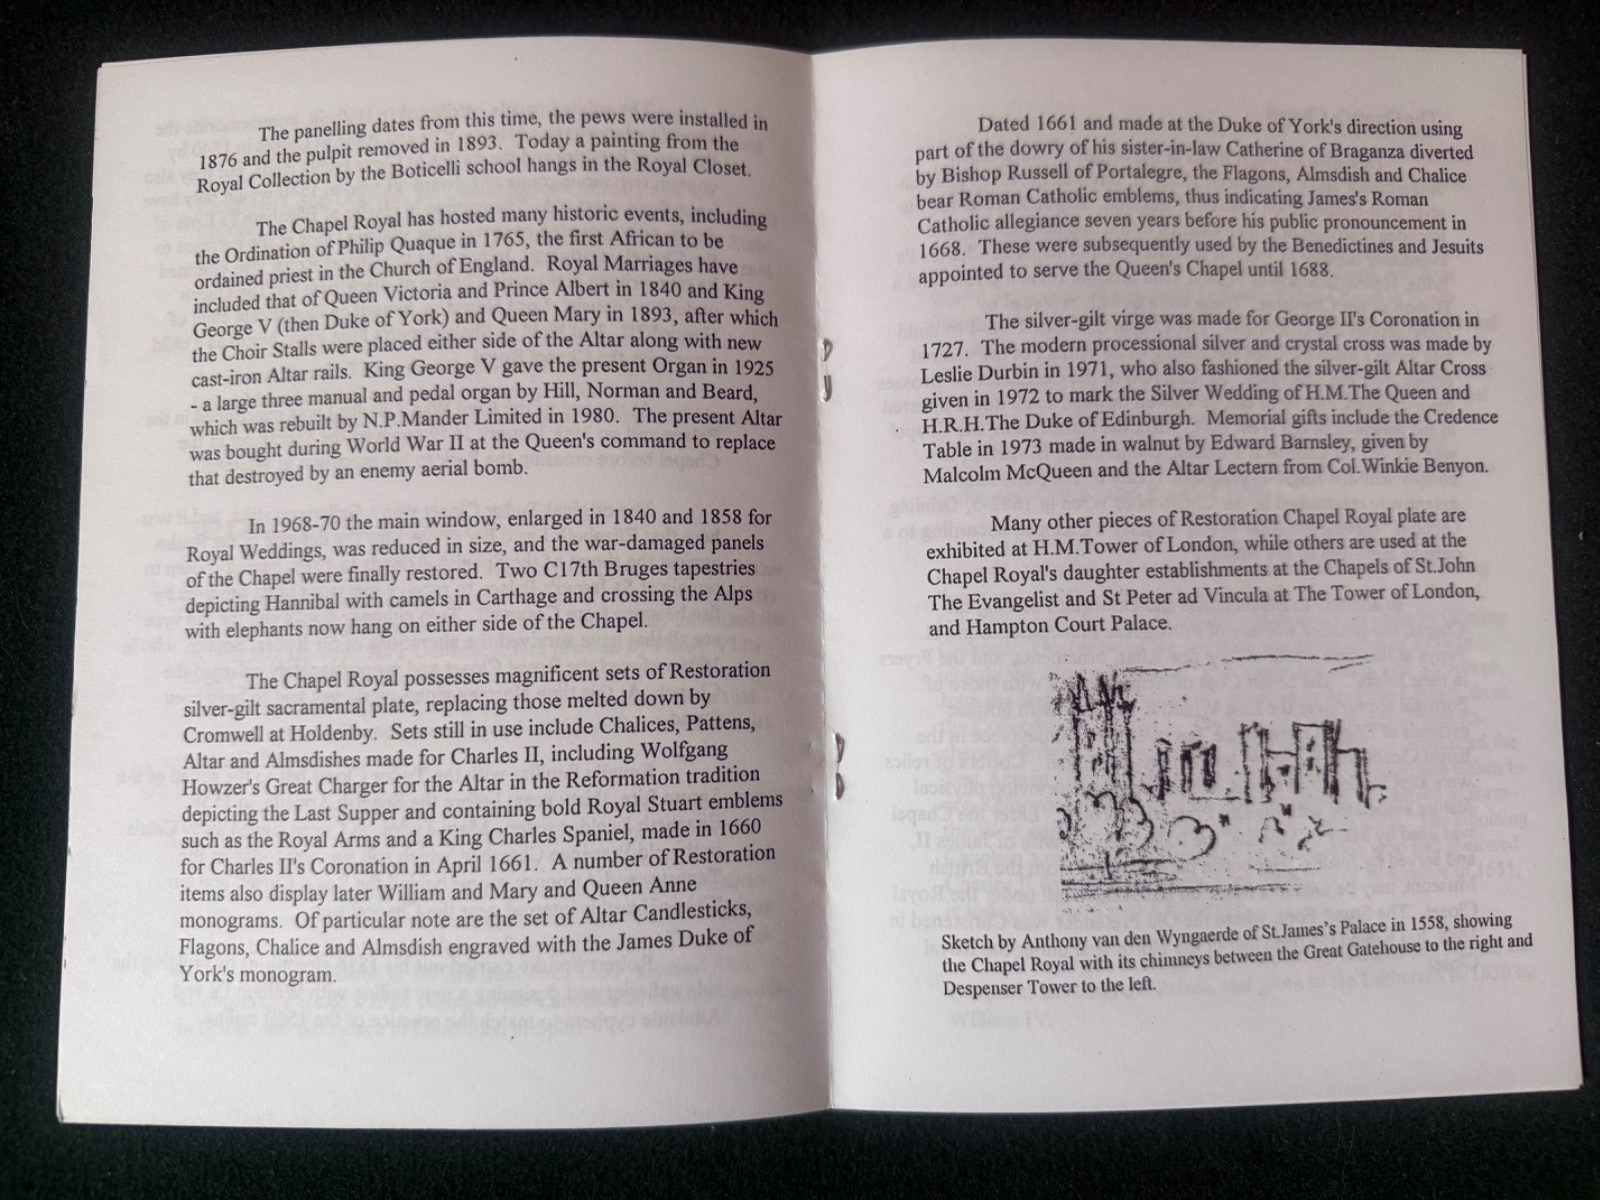 The panelling dates from this time, the pews were installed in
1876 and the pulpit removed in 1893. Today a painting from the
Royal Collection by the Boticelli school hangs in the Royal Closet.
The Chapel Royal has hosted many historic events, including
the Ordination of Philip Quaque in 1765, the first African to be
ordained priest in the Church of England. Royal Marriages have
included that of Queen Victoria and Prince Albert in 1840 and King
George V (then Duke of York) and Queen Mary in 1893, after which
the Choir Stalls were placed either side of the Altar along with new
cast-iron Altar rails. King George V gave the present Organ in 1925
- a large three manual and pedal organ by Hill, Norman and Beard,
which was rebuilt by N.P.Mander Limited in 1980. The present Altar
was bought during World War II at the Queen's command to replace
that destroyed by an enemy aerial bomb.
In 1968-70 the main window, enlarged in 1840 and 1858 for
Royal Weddings, was reduced in size, and the war-damaged panels
of the Chapel were finally restored. Two C17th Bruges tapestries
depicting Hannibal with camels in Carthage and crossing the Alps
with elephants now hang on either side of the Chapel.
The Chapel Royal possesses magnificent sets of Restoration
silver-gilt sacramental plate, replacing those melted down by
Cromwell at Holdenby. Sets still in use include Chalices, Pattens,
Altar and Almsdishes made for Charles II, including Wolfgang
Howzer's Great Charger for the Altar in the Reformation tradition
depicting the Last Supper and containing bold Royal Stuart emblems
such as the Royal Arms and a King Charles Spaniel, made in 1660
for Charles II's Coronation in April 1661. A number of Restoration
items also display later William and Mary and Queen Anne
monograms. Of particular note are the set of Altar Candlesticks,
Flagons, Chalice and Almsdish engraved with the James Duke of
York's monogram.
Dated 1661 and made at the Duke of York's direction using
part of the dowry of his sister-in-law Catherine of Braganza diverted
by Bishop Russell of Portalegre, the Flagons, Almsdish and Chalice
bear Roman Catholic emblems, thus indicating James's Roman
Catholic allegiance seven years before his public pronouncement in
1668. These were subsequently used by the Benedictines and Jesuits
appointed to serve the Queen's Chapel until 1688.
The silver-gilt virge was made for George II's Coronation in
1727. The modern processional silver and crystal cross was made by
Leslie Durbin in 1971, who also fashioned the silver-gilt Altar Cross
given in 1972 to mark the Silver Wedding of H.M.The Queen and
H.R.H.The Duke of Edinburgh. Memorial gifts include the Credence
Table in 1973 made in walnut by Edward Barnsley, given by
Malcolm McQueen and the Altar Lectern from Col.Winkie Benyon.
Many other pieces of Restoration Chapel Royal plate are
exhibited at H.M.Tower of London, while others are used at the
Chapel Royal's daughter establishments at the Chapels of St.John
The Evangelist and St Peter ad Vincula at The Tower of London,
and Hampton Court Palace.
Sketch by Anthony van den Wyngaerde of St.James's Palace in 1558, showing
the Chapel Royal with its chimneys between the Great Gatehouse to the right and
Despenser Tower to the left.